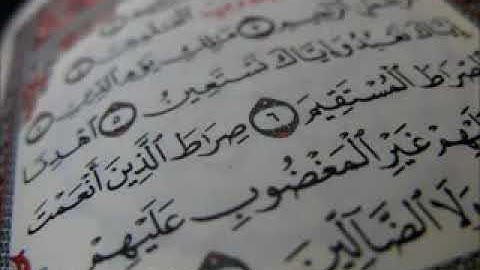 الرَّحْمَٰنِ الرَّحِيمِ ٣ مَالِكِ يَوْمِ الدِّينِ ٤
إِيَّاكَ نَعْبُدُ وَإِيَّاكَ نَسْتَعِينُ ٥ اهْدِنَا
الصِّرَاطَ الْمُسْتَقِيمَ ٦ صِرَاطَ الَّذِينَ أَنْعَمْتَ
لَيْهِمْ غَيْرِ الْمَغْضُوبِ عَلَيْهِمْ
وَلَا الضَّالِّينَ